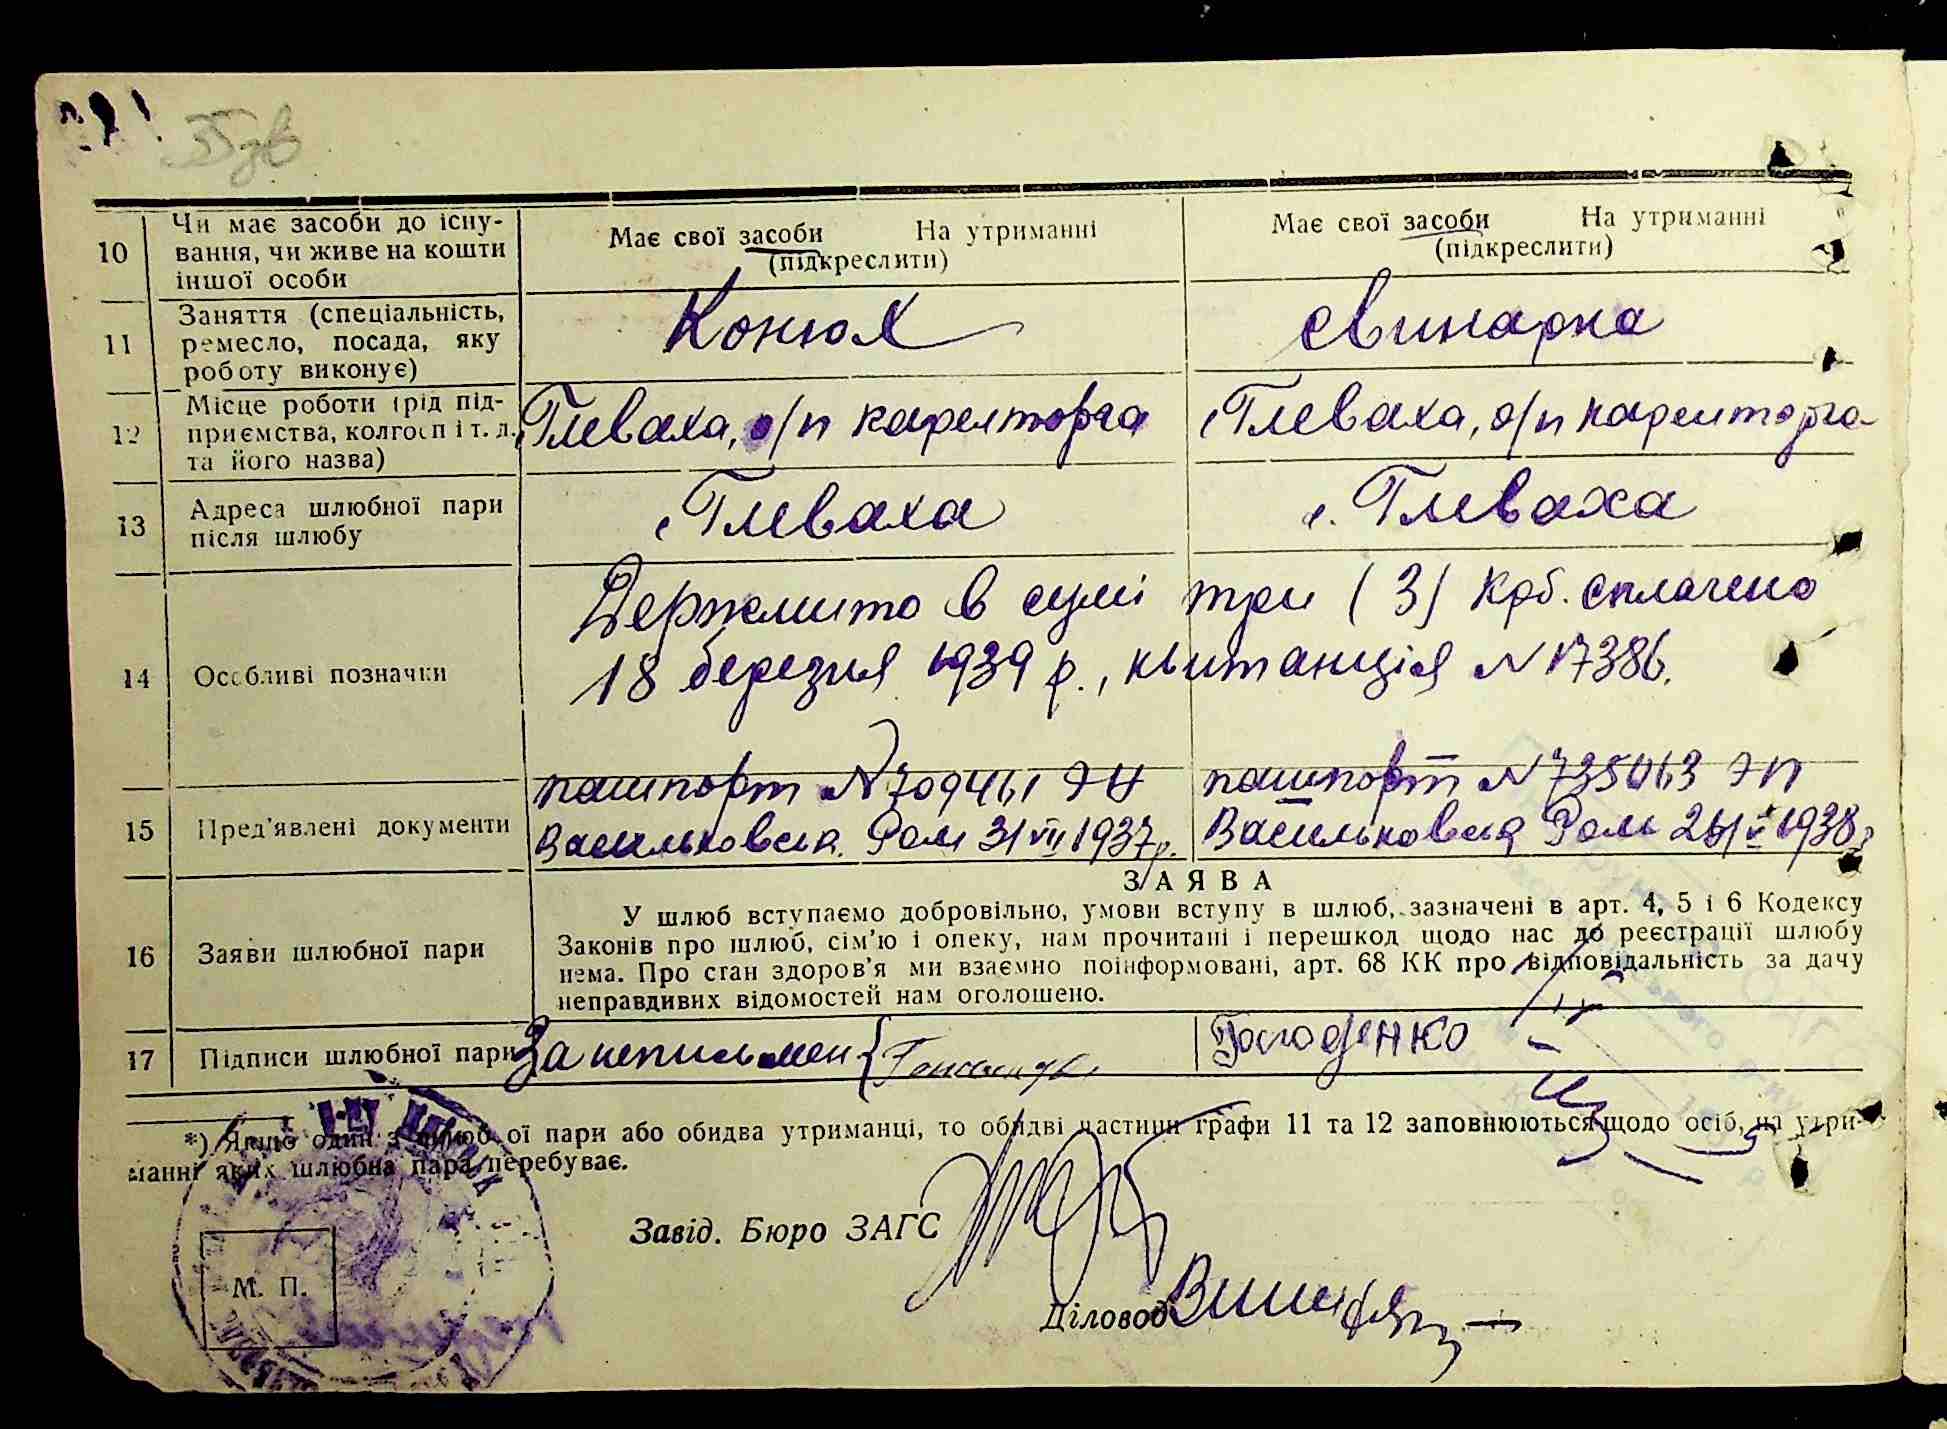 35зв
10 Чи має засоби до існу-
вання, чи живе на кошти
іншої особи
Має свої засоби На утриманні
(підкреслити)
Має свої засоби На утриманні
(підкреслити)
11 Заняття (спеціальність,
ремесло, посада, яку
роботу виконує)
Конюх
свинарка
12 Місце роботи (рід під-
приємства, колгосп і т. д.
та його назва)
Глеваха, о/п
Глеваха, о/п
13 Адреса шлюбної пари
після шлюбу
с Глеваха
с. Глеваха
14 Особливі позначки
Держмито в сумі три (3) крб. сплачено
18 березня 1939 р., квитанція N 17386.
15 Пред'явлені документи
пашпорт N 709461
Васильковськ. 31 VII 1937 р.
пашпорт N
Васильковськ 1938 р
16 Заяви шлюбної пари
ЗАЯВА
У шлюб вступаємо добровільно, умови вступу в шлюб, зазначені в арт. 4, 5 і 6 Кодексу
Законів про шлюб, сім'ю і опеку, нам прочитані і перешкод щодо нас до реєстрації шлюбу
нема. Про стан здоров'я ми взаємно поінформовані, арт. 68 КК про відповідальність за дачу
неправдивих відомостей нам оголошено.
17 Підписи шлюбної пари
За неписьмен
*) Якщо один з шлюбої пари або обидва утриманці, то обидві частини графи 11 та 12 заповнюються щодо осіб, на утри-
манні яких шлюбна пара перебуває.
Завід. Бюро ЗАГС
М. П.
Діловод